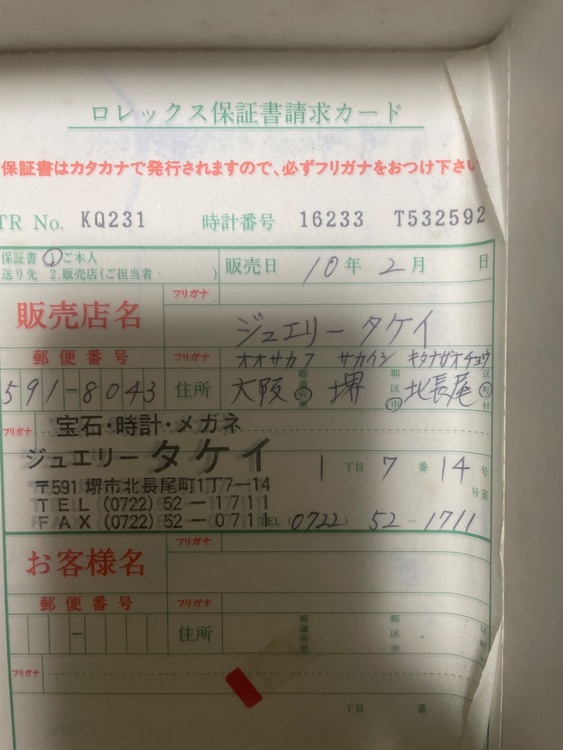 ロレックス保証書請求カード
保証書はカタカナで発行されますので、必ずフリガナをおつけ下さい
TR No. KQ231 時計番号 16233 T532592
保証書 ①ご本人
送り先 2.販売店(ご担当者 )
販売日 10年 2月 日
販売店名
フリガナ
ジュエリー タケイ
郵便番号
フリガナ オオサカフ サカイシ キタナガオチョウ
591-8043
住所 大阪 都道府県 堺 都区市 北長尾 区町村
フリガナ
宝石・時計・メガネ
ジュエリー タケイ
〒591 堺市北長尾町1丁7-14
TEL (0722) 52-1711
FAX (0722) 52-0711
1 丁目 7 番 14 号
号室
TEL (0722) 52-1711
お客様名
フリガナ
郵便番号
フリガナ
-
住所 都道府県 都区市 区町村
フリガナ
丁目 番